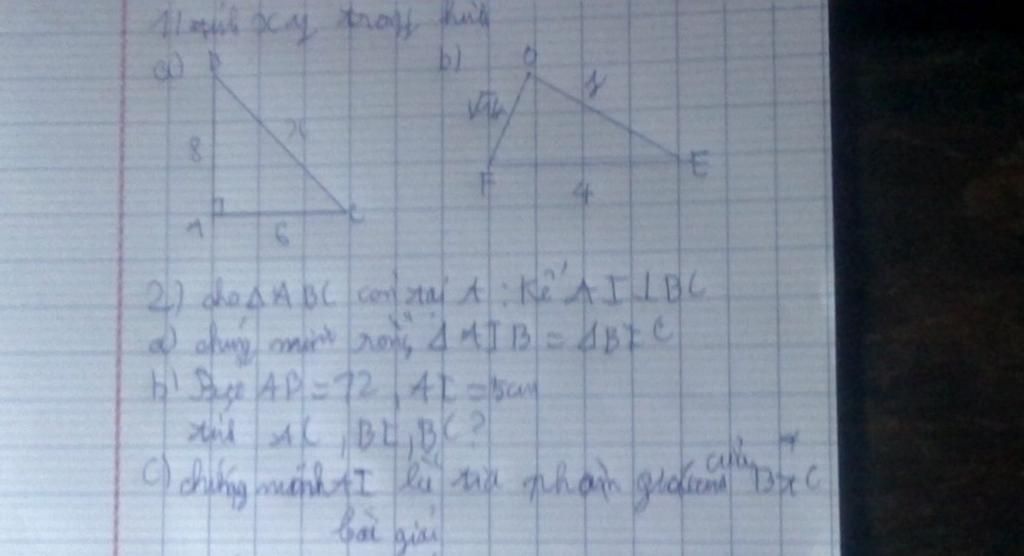 1) tính x, y trong hình
a) b)
B D
8 x y
F E
4
A C
6
2) cho Δ ABC cân tại A: Kẻ AI ⊥ BC
a) chứng minh rằng Δ AIB = Δ BI C
b) AB = 12, AI = 5cm
tính AC, BI, BC?
c) chứng minh AI là tia phân giác của BAC
bài giải